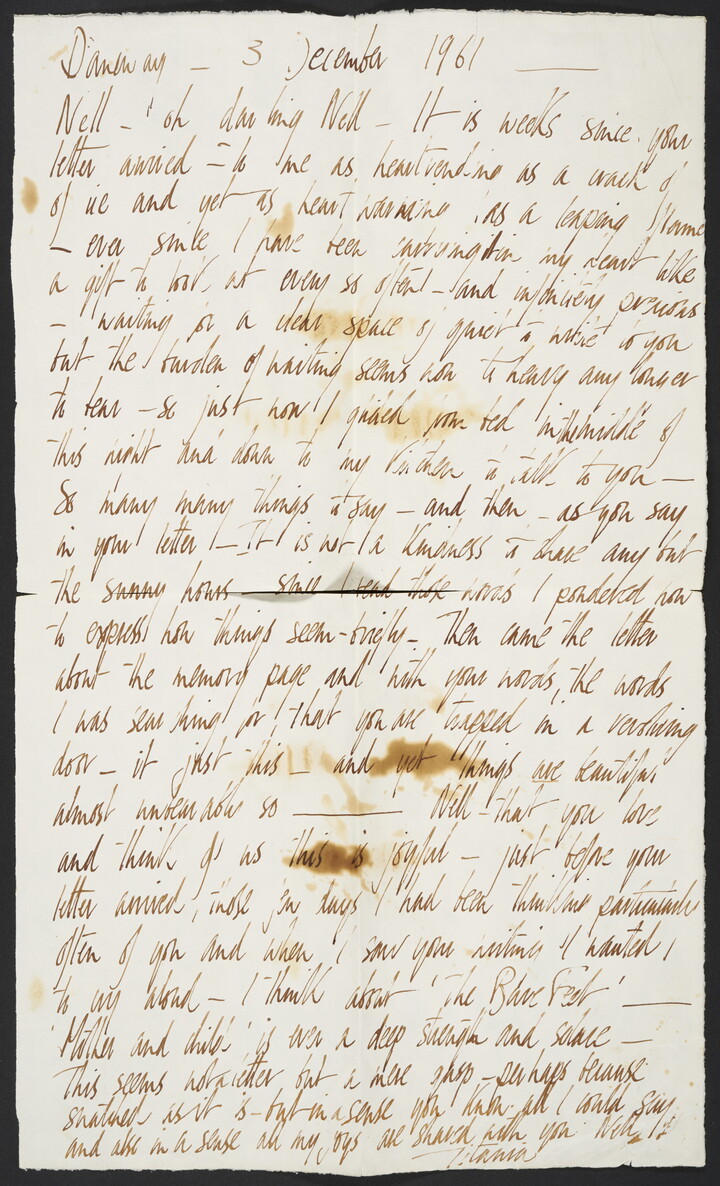 3 December 1961
Nell - oh darling Nell - It is weeks since your
letter arrived - to me as heartrending as a crack of
of ice and yet as heart warming as a leaping flame
- ever since I have been carrying it in my heart like
a gift to look at every so often - and infinitely precious
- waiting for a clear space of quiet to write to you
but the burden of waiting seems now to heavy any longer
to bear - so just now I quited my bed in the middle of
this night and down to my kitchen to talk to you -
So many many things to say - and then - as you say
in your letter - It is not a kindness to share any but
the sunny hours - since I read those words I pondered how
to express how things seem - briefly - Then came the letter
about the memory page and with your words, the words
I was searching for! That you are trapped in a revolving
door - it just this - and yet things are beautiful
almost unbearable so — Nell - that you love
and think of us this is joyful - just before your
letter arrived, those few days I had been thinking particularly
often of you and when I saw your writing I wanted
to cry aloud - I think about 'The Bare Feet' —
'Mother and child' is ever a deep strength and solace -
This seems not a letter but a mere gasp - perhaps because
snatched as it is - but in a sense you know all I could say
and also in a sense all my joys are shared with you Nell